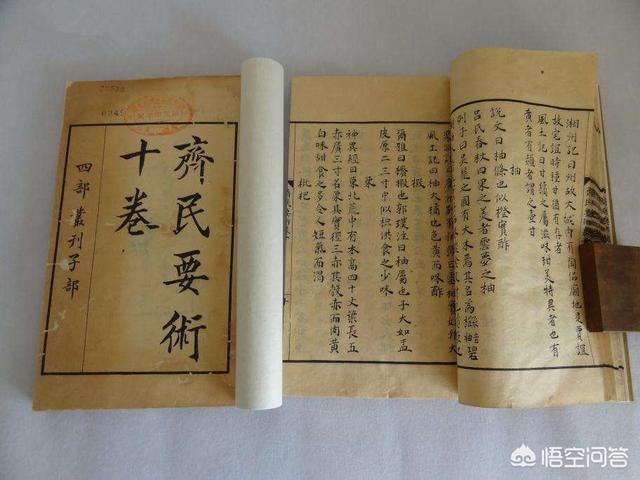 齊民要術
十卷
四部叢刊子部
湘州記曰州故大城內有陶侃廟地是賈誼
故宅誼時種甘猶有存者
風土記曰甘橘之屬滋味甜美特異者也有
黃者有赬者謂之壺甘
柚
說文曰柚條也似橙實酢
呂氏春秋曰果之美者雲夢之柚
列子曰吳楚之國有大木焉其名為櫾碧
風土記曰柚大橘也色黃而味酢
椵
爾雅曰櫠椵也郭璞注曰柚屬也子大如盂
皮厚二三寸中似枳供食之少味
栗
神異經曰東北荒中有木高四十丈葉長五
赤廣三寸名栗其實徑三赤其殼赤而肉黃
白味甜食之多令人短氣而渴
枇杷
悟空问答